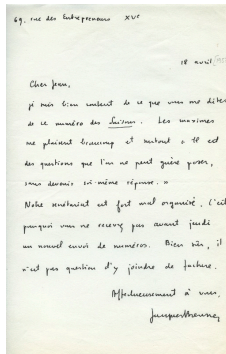 69, rue des Entrepreneurs XVe
18 avril
Cher Jean,
je suis bien content de ce que vous me dites
de ce numéro des Saisons. Les maximes
me plaisent beaucoup et surtout « Il est
des questions que l'on ne peut guère poser,
sans devenir soi-même réponse. »
Notre secrétariat est fort mal organisé, c'est
pourquoi vous ne recevrez pas avant jeudi
un nouvel envoi de numéros. Bien sûr, il
n'est pas question d'y joindre de facture.
Affectueusement à vous,